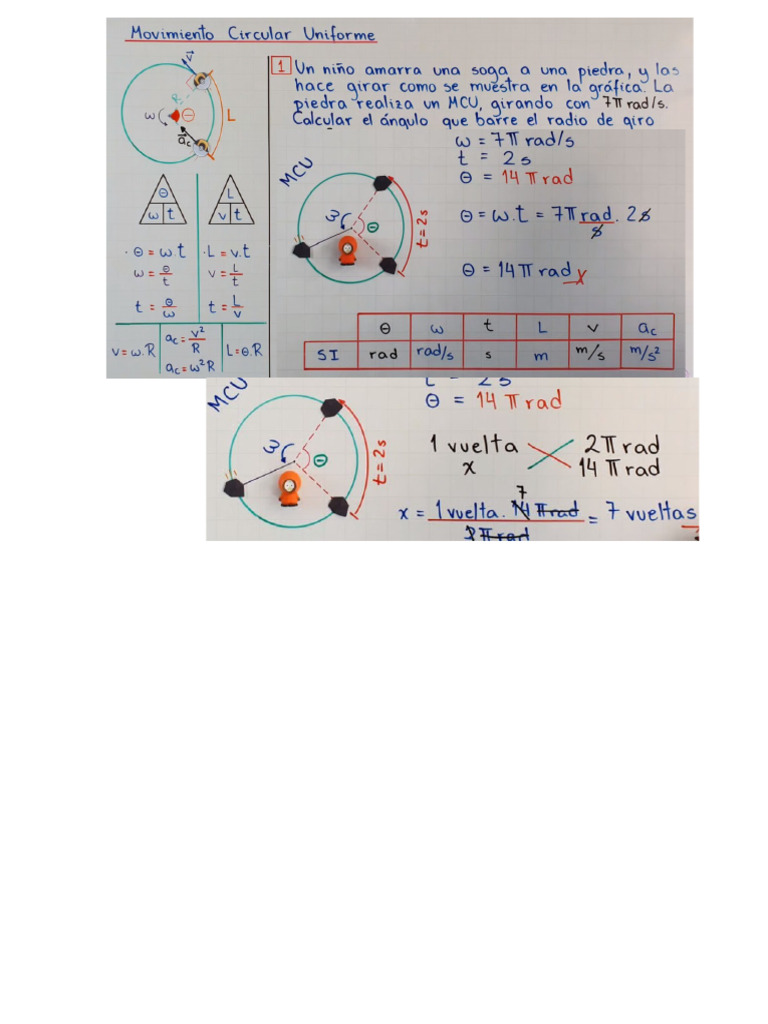 Movimiento Circular Uniforme
V
R
ω
θ
L
ac
θ
ω t
L
v t
· θ = ω.t
ω = θ/t
t = θ/ω
· L = v.t
v = L/t
t = L/v
v = ω.R
ac = v²/R
ac = ω²R
L = θ.R
1 Un niño amarra una soga a una piedra, y las
hace girar como se muestra en la gráfica. La
piedra realiza un MCU, girando con 7π rad/s.
Calcular el ángulo que barre el radio de giro
MCU
ω
θ
t = 2s
ω = 7π rad/s
t = 2s
θ = 14π rad
θ = ω.t = 7π rad/s . 2s
θ = 14π rad
θ ω t L v ac
SI rad rad/s s m m/s m/s²
MCU
ω
θ
t = 2s
t = 2s
θ = 14π rad
1 vuelta 2π rad
x 14π rad
7
x = 1 vuelta . 14π rad / 2π rad = 7 vueltas